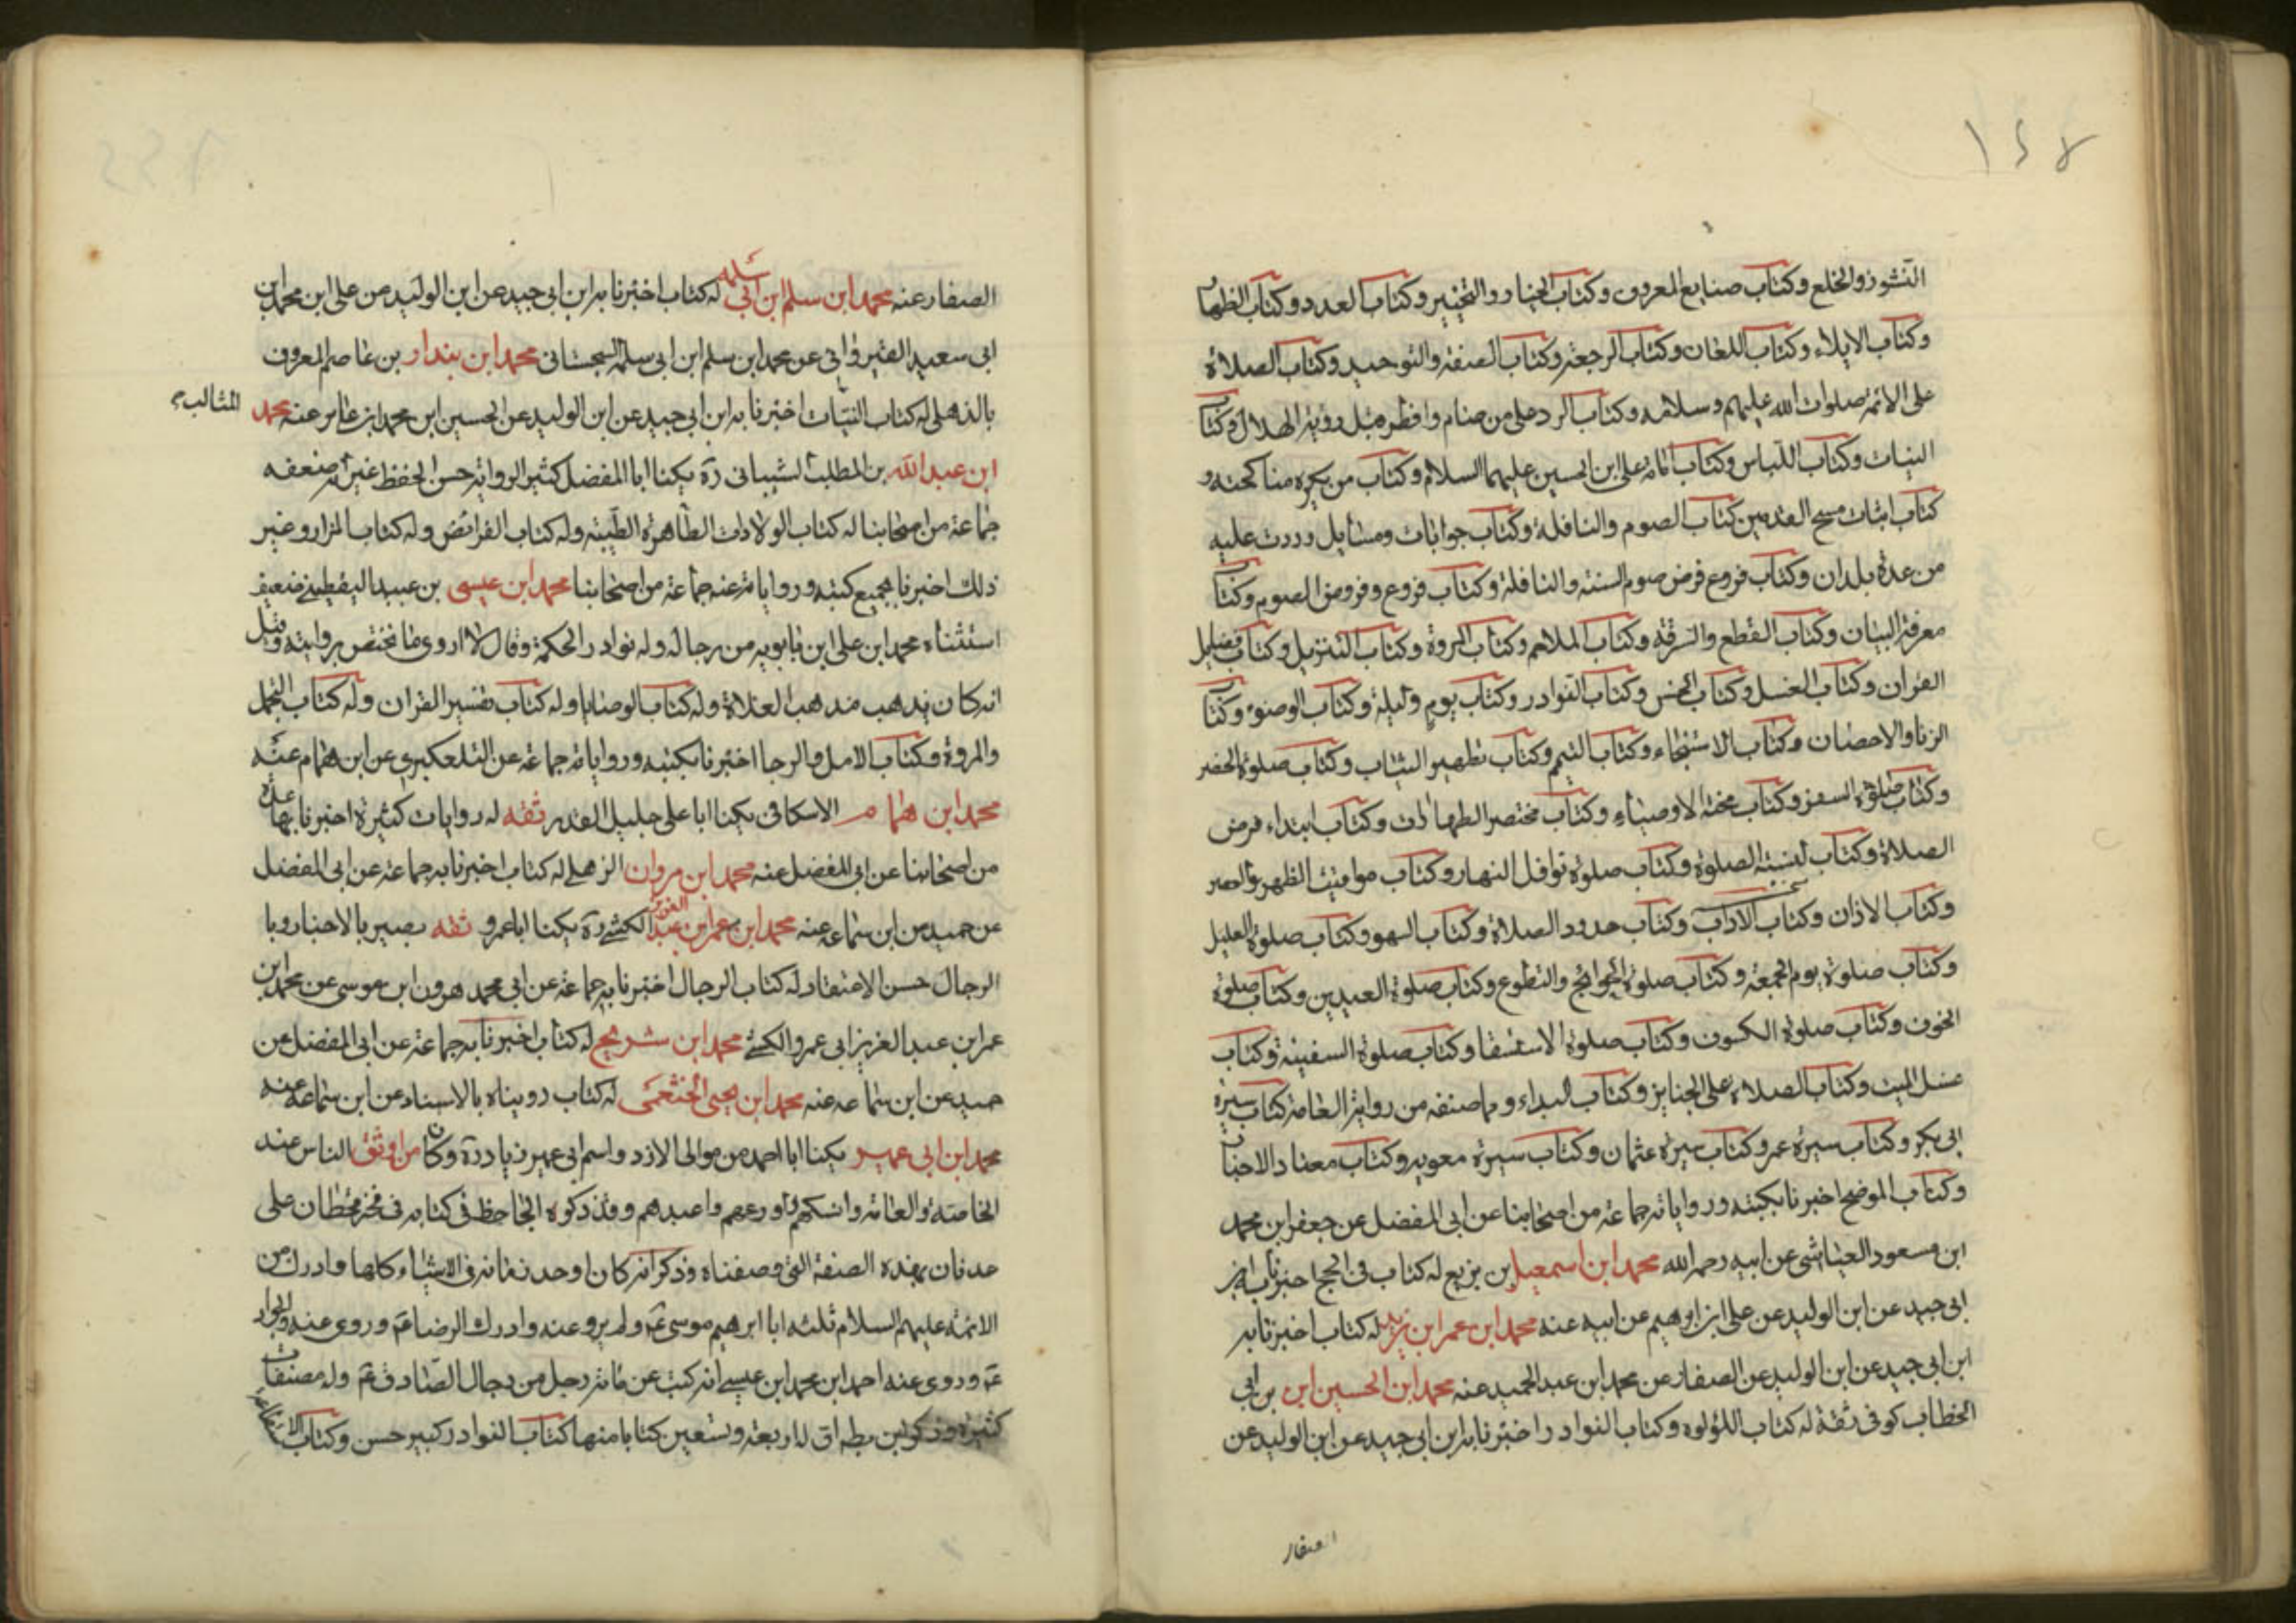 النشوز والخلع وكتاب صنايع المعروف وكتاب الخيار والتخيير وكتاب العدد وكتاب الظهار
وكتاب الايلاء وكتاب اللعان وكتاب الرجعة وكتاب الصفة والتوحيد وكتاب الصلاة
على الائمة صلوات الله عليهم وسلامه وكتاب الرد على من صام وافطر قبل روية الهلال وكتاب
النيات وكتاب اللباس وكتاب امامة على ابن الحسين عليهما السلام وكتاب من يكره مناكحته و
كتاب اثبات مسح القدمين كتاب الصوم والنافلة وكتاب جوابات ومسايل وردت عليه
من عدة بلدان وكتاب فروع فرض صوم السنة والنافلة وكتاب فروع وفروض الصوم وكتاب
معرفة البيان وكتاب القطع والسرقة وكتاب الملاحم وكتاب المروة وكتاب التنزيل وكتاب فضايل
القران وكتاب الغسل وكتاب الخمس وكتاب النوادر وكتاب يوم وليلة وكتاب الوضوء وكتاب
الزنا والاحصان وكتاب الاستنجاء وكتاب التيمم وكتاب تطهير الثياب وكتاب صلوة الحضر
وكتاب صلوة السفر وكتاب محنة الاوصياء وكتاب مختصر الطهارات وكتاب ابتداء فرض
الصلاة وكتاب لبسة الصلوة وكتاب صلوة نوافل النهار وكتاب مواقيت الظهر والعصر
وكتاب الاذان وكتاب الاداب وكتاب حدود الصلاة وكتاب السهو وكتاب صلوة العليل
وكتاب صلوة يوم الجمعة وكتاب صلوة الحوائج والتطوع وكتاب صلوة العيدين وكتاب صلوة
الخوف وكتاب صلوة الكسوف وكتاب صلوة الاستسقا وكتاب صلوة السفينة وكتاب
غسل الميت وكتاب الصلاة على الجنايز وكتاب البداء ومما صنفه من رواية العامة كتاب سيرة
ابى بكر وكتاب سيرة عمر وكتاب سيرة عثمان وكتاب سيرة معوية وكتاب معيار الاخبار
وكتاب الموضح اخبرنا بكتبه ورواياته جماعة من اصحابنا عن ابى المفضل عن جعفر ابن محمد
ابن مسعود العياشى عن ابيه رحمه الله محمد ابن اسمعيل بن بزيع له كتاب فى الحج اخبرنا به ابن
ابى جيد عن ابن الوليد عن على ابن ابرهيم عن ابيه عنه محمد ابن عمر ابن يزيد له كتاب اخبرنا به
ابن ابى جيد عن ابن الوليد عن الصفار عن محمد ابن عبد الحميد عنه محمد ابن الحسين ابن بن ابى
الخطاب كوفى ثقة له كتاب اللؤلوة وكتاب النوادر اخبرنا به ابن ابى جيد عن ابن الوليد عن
الصفار
الصفار عنه محمد ابن سلم ابن ابى سلمه له كتاب اخبرنا به ابن ابى جيد عن ابن الوليد عن على ابن محمد ابن
ابى سعيد القيروانى عن محمد ابن سلم ابن ابى سلمة السجستانى محمد ابن بندار بن عاصم المعروف
بالذهلى له كتاب النيات اخبرنا به ابن ابى جيد عن ابن الوليد عن الحسين ابن محمد ابن عامر عنه محمد
المثالب
ابن عبد الله بن المطلب الشيبانى ره يكنا ابا المفضل كثير الرواية حسن الحفظ غير انه ضعفه
جماعة من اصحابنا له كتاب الولادات الطاهرة الطيبة وله كتاب الفرائض وله كتاب المزار وغير
ذلك اخبرنا بجميع كتبه ورواياته عنه جماعة من اصحابنا محمد ابن عيسى بن عبيد اليقطينى ضعيف
استثناه محمد ابن على ابن بابويه من رجال له وله نوادر الحكمة وقال لا اروى ما تختص بروايته وقيل
انه كان يذهب مذهب الغلاة وله كتاب الوصايا وله كتاب تفسير القران وله كتاب التجمل
والمروة وكتاب الامل والرجا اخبرنا بكتبه ورواياته جماعة عن التلعكبرى عن ابن همام عنه
محمد ابن همام الاسكافى يكنا ابا على جليل القدر ثقه له روايات كثيرة اخبرنا بها عدة
من اصحابنا عن ابى المفضل عنه محمد ابن مروان الذهلى له كتاب اخبرنا به جماعة عن ابى المفضل
عن حميد عن ابن سماعه عنه محمد ابن عمر ابن عبد العزيز الكشى ره يكنا ابا عمرو ثقه بصير بالاخبار وبا
الرجال حسن الاعتقاد له كتاب الرجال اخبرنا به جماعة عن ابى محمد هرون ابن موسى عن محمد ابن
عمر ابن عبد العزيز ابى عمرو الكشى محمد ابن شريح له كتاب اخبرنا به جماعة عن ابى المفضل عن
حميد عن ابن سماعه عنه محمد ابن يحيى الخثعمى له كتاب رويناه بالاسناد عن ابن سماعة عنه
محمد ابن ابى عمير يكنا ابا احمد من موالى الازد واسم ابى عمير زياد ره وكان من اوثق الناس عند
الخاصة والعامة وانسكهم واورعهم واعبدهم وقد ذكره الجاحظ فى كتابه فى فخر قحطان على
عدنان بهذه الصفة التى وصفناه وذكر انه كان اوحد زمانه فى الاشياء كلها وادرك من
الائمة عليهم السلام ثلثه ابا ابرهيم موسى ع ولم يرو عنه وادرك الرضا ع وروى عنه والجواد
ع وروى عنه احمد ابن محمد ابن عيسى انه كتب عن مائة رجل من رجال الصادق ع وله مصنفات
كثيرة وذكر ابن بطه ان له اربعة وتسعين كتابا منها كتاب النوادر كبير حسن وكتاب